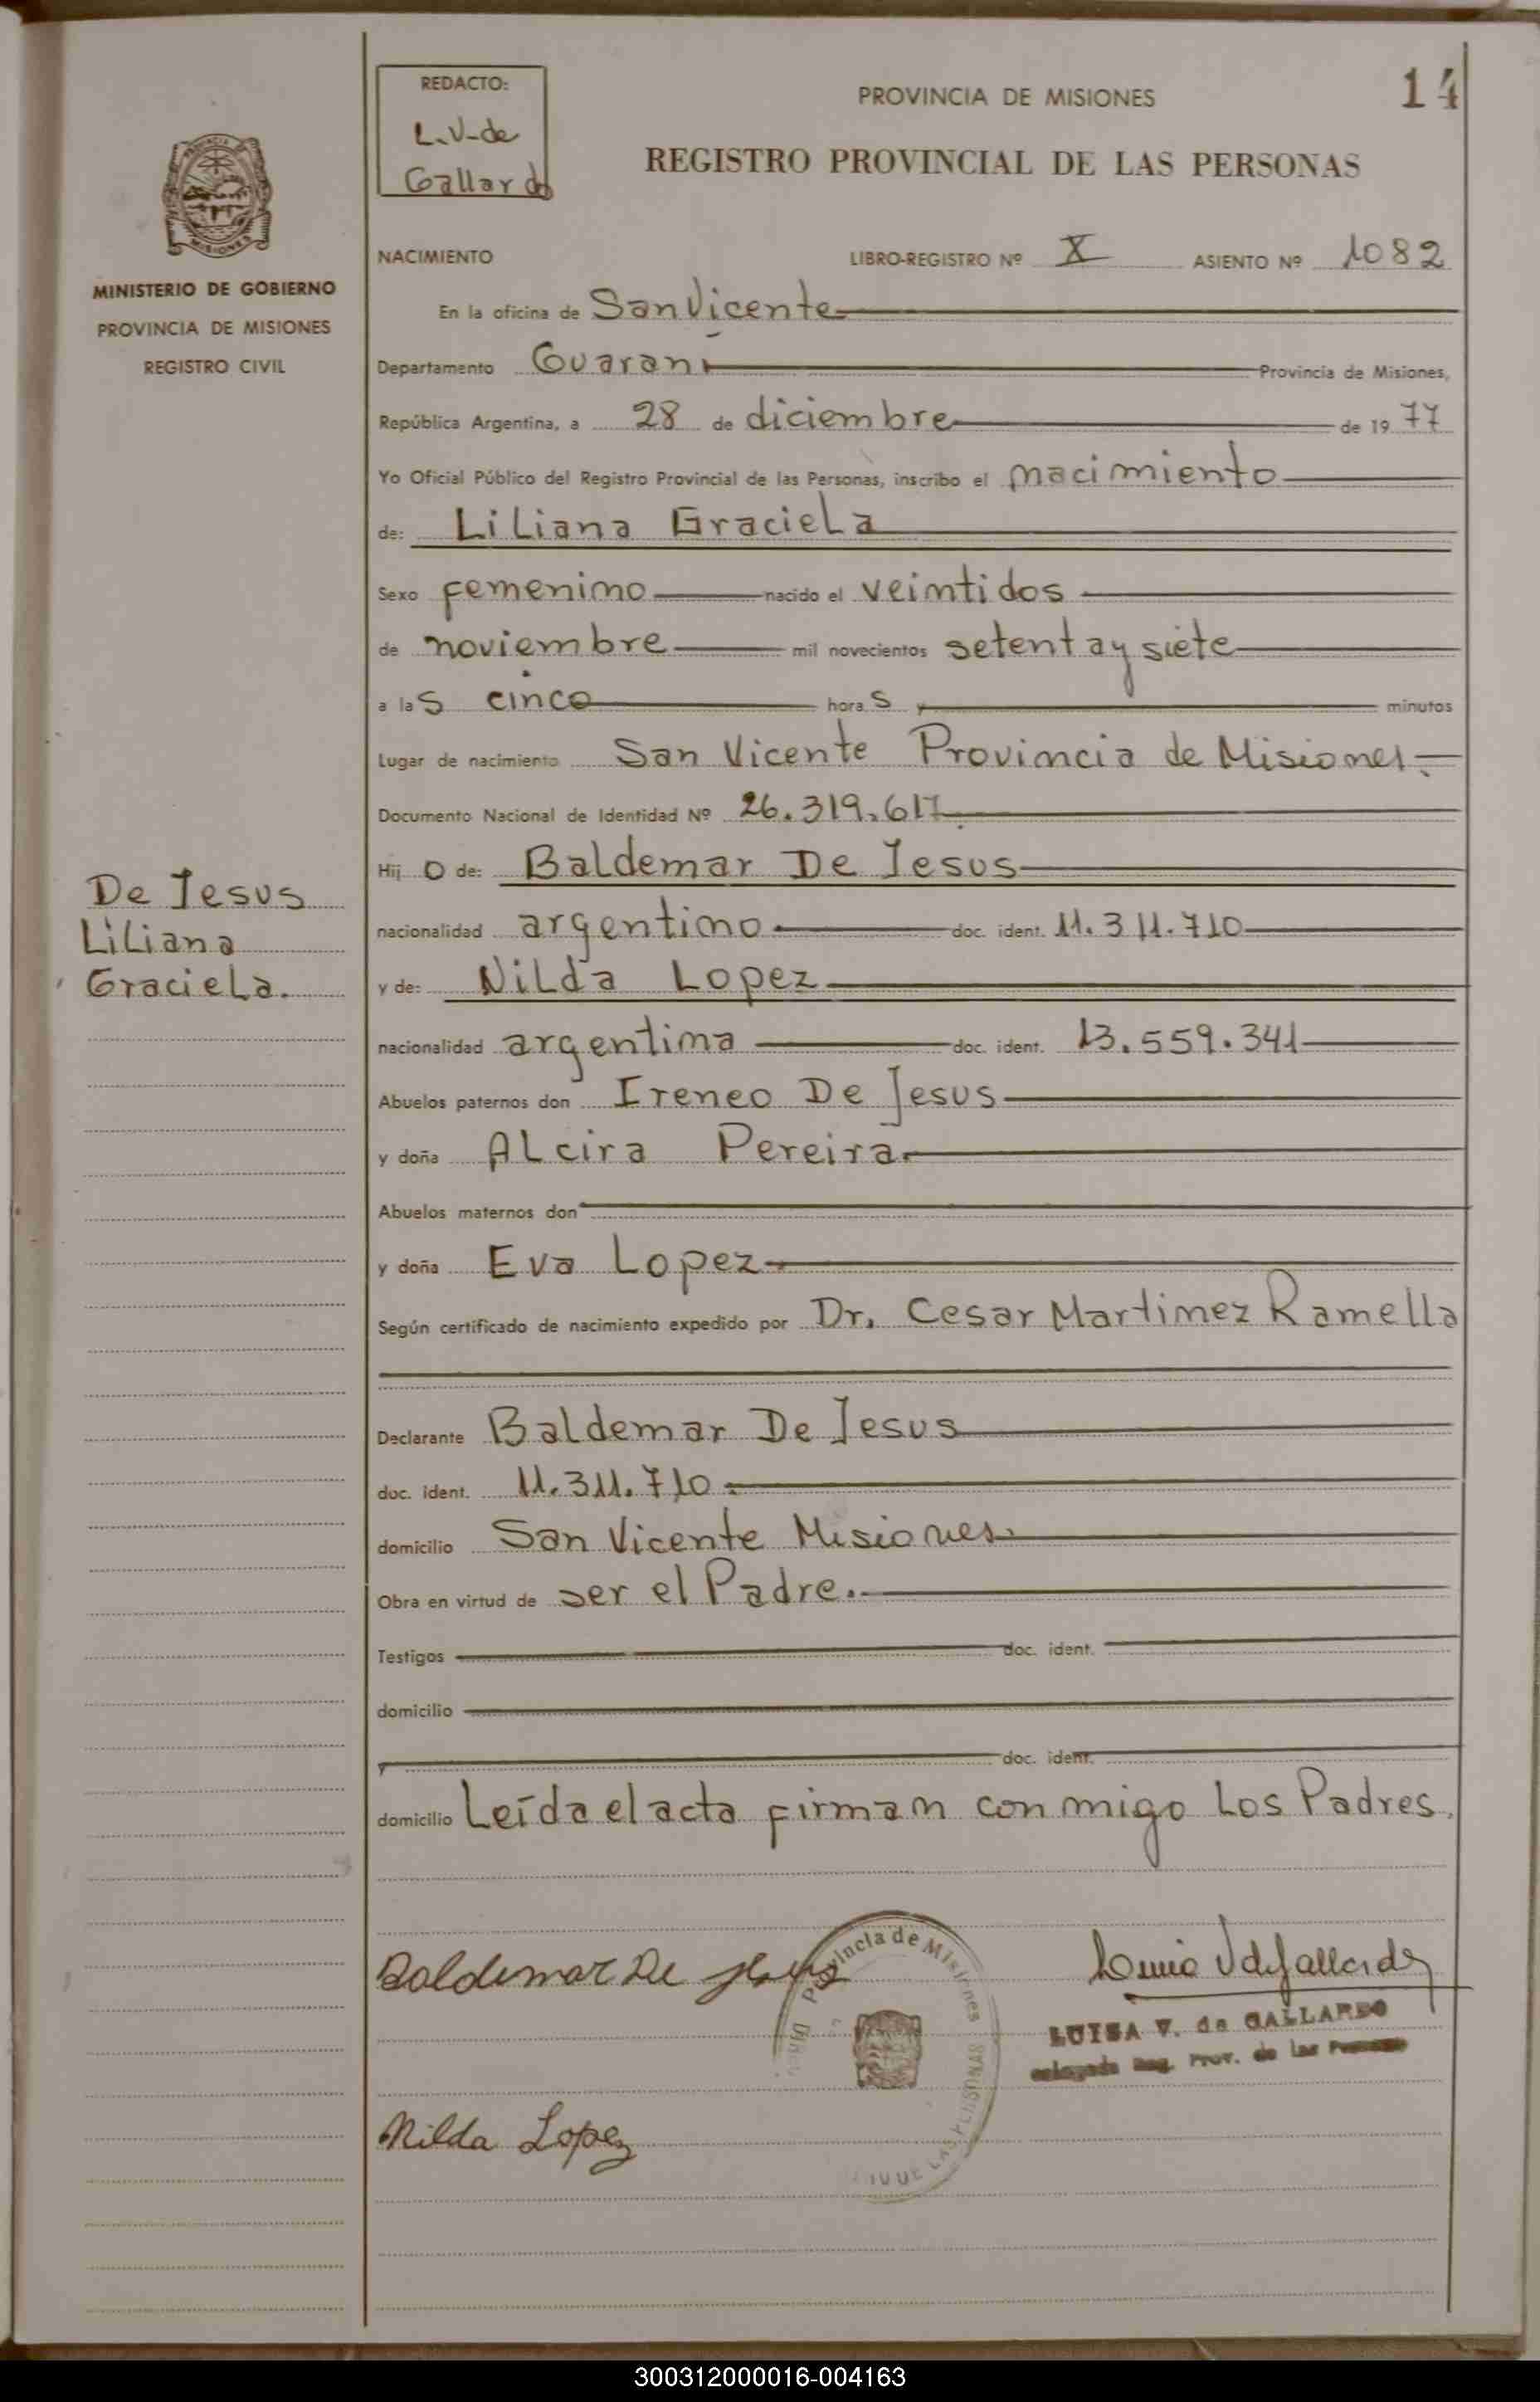 REDACTO:
L.V. de
Gallardo
PROVINCIA DE MISIONES
14
REGISTRO PROVINCIAL DE LAS PERSONAS
MINISTERIO DE GOBIERNO
PROVINCIA DE MISIONES
REGISTRO CIVIL
NACIMIENTO LIBRO-REGISTRO Nº X ASIENTO Nº 1082
En la oficina de San Vicente
Departamento Guaraní Provincia de Misiones,
República Argentina, a 28 de diciembre de 1977
Yo Oficial Público del Registro Provincial de las Personas, inscribo el nacimiento
de: Liliana Graciela
Sexo femenino nacido el veintidos
de noviembre mil novecientos setenta y siete
a las cinco horas y minutos
Lugar de nacimiento San Vicente Provincia de Misiones.
Documento Nacional de Identidad Nº 26.319.617
Hijo de: Baldemar De Jesus
De Jesus
Liliana
Graciela.
nacionalidad argentino doc. ident. 11.311.710
y de: Nilda Lopez
nacionalidad argentina doc. ident. 13.559.341
Abuelos paternos don Ireneo De Jesus
y doña Alcira Pereira.
Abuelos maternos don
y doña Eva Lopez
Según certificado de nacimiento expedido por Dr. Cesar Martinez Ramella
Declarante Baldemar De Jesus
doc. ident. 11.311.710
domicilio San Vicente Misiones.
Obra en virtud de ser el Padre.
Testigos doc. ident.
domicilio
y doc. ident.
domicilio Leída el acta firman conmigo Los Padres.
Baldemar De Jesus
Provincia de Misiones
LAS PERSONAS
LUISA V. de GALLARDO
Reg. Prov. de las Personas
Nilda Lopez
300312000016-004163